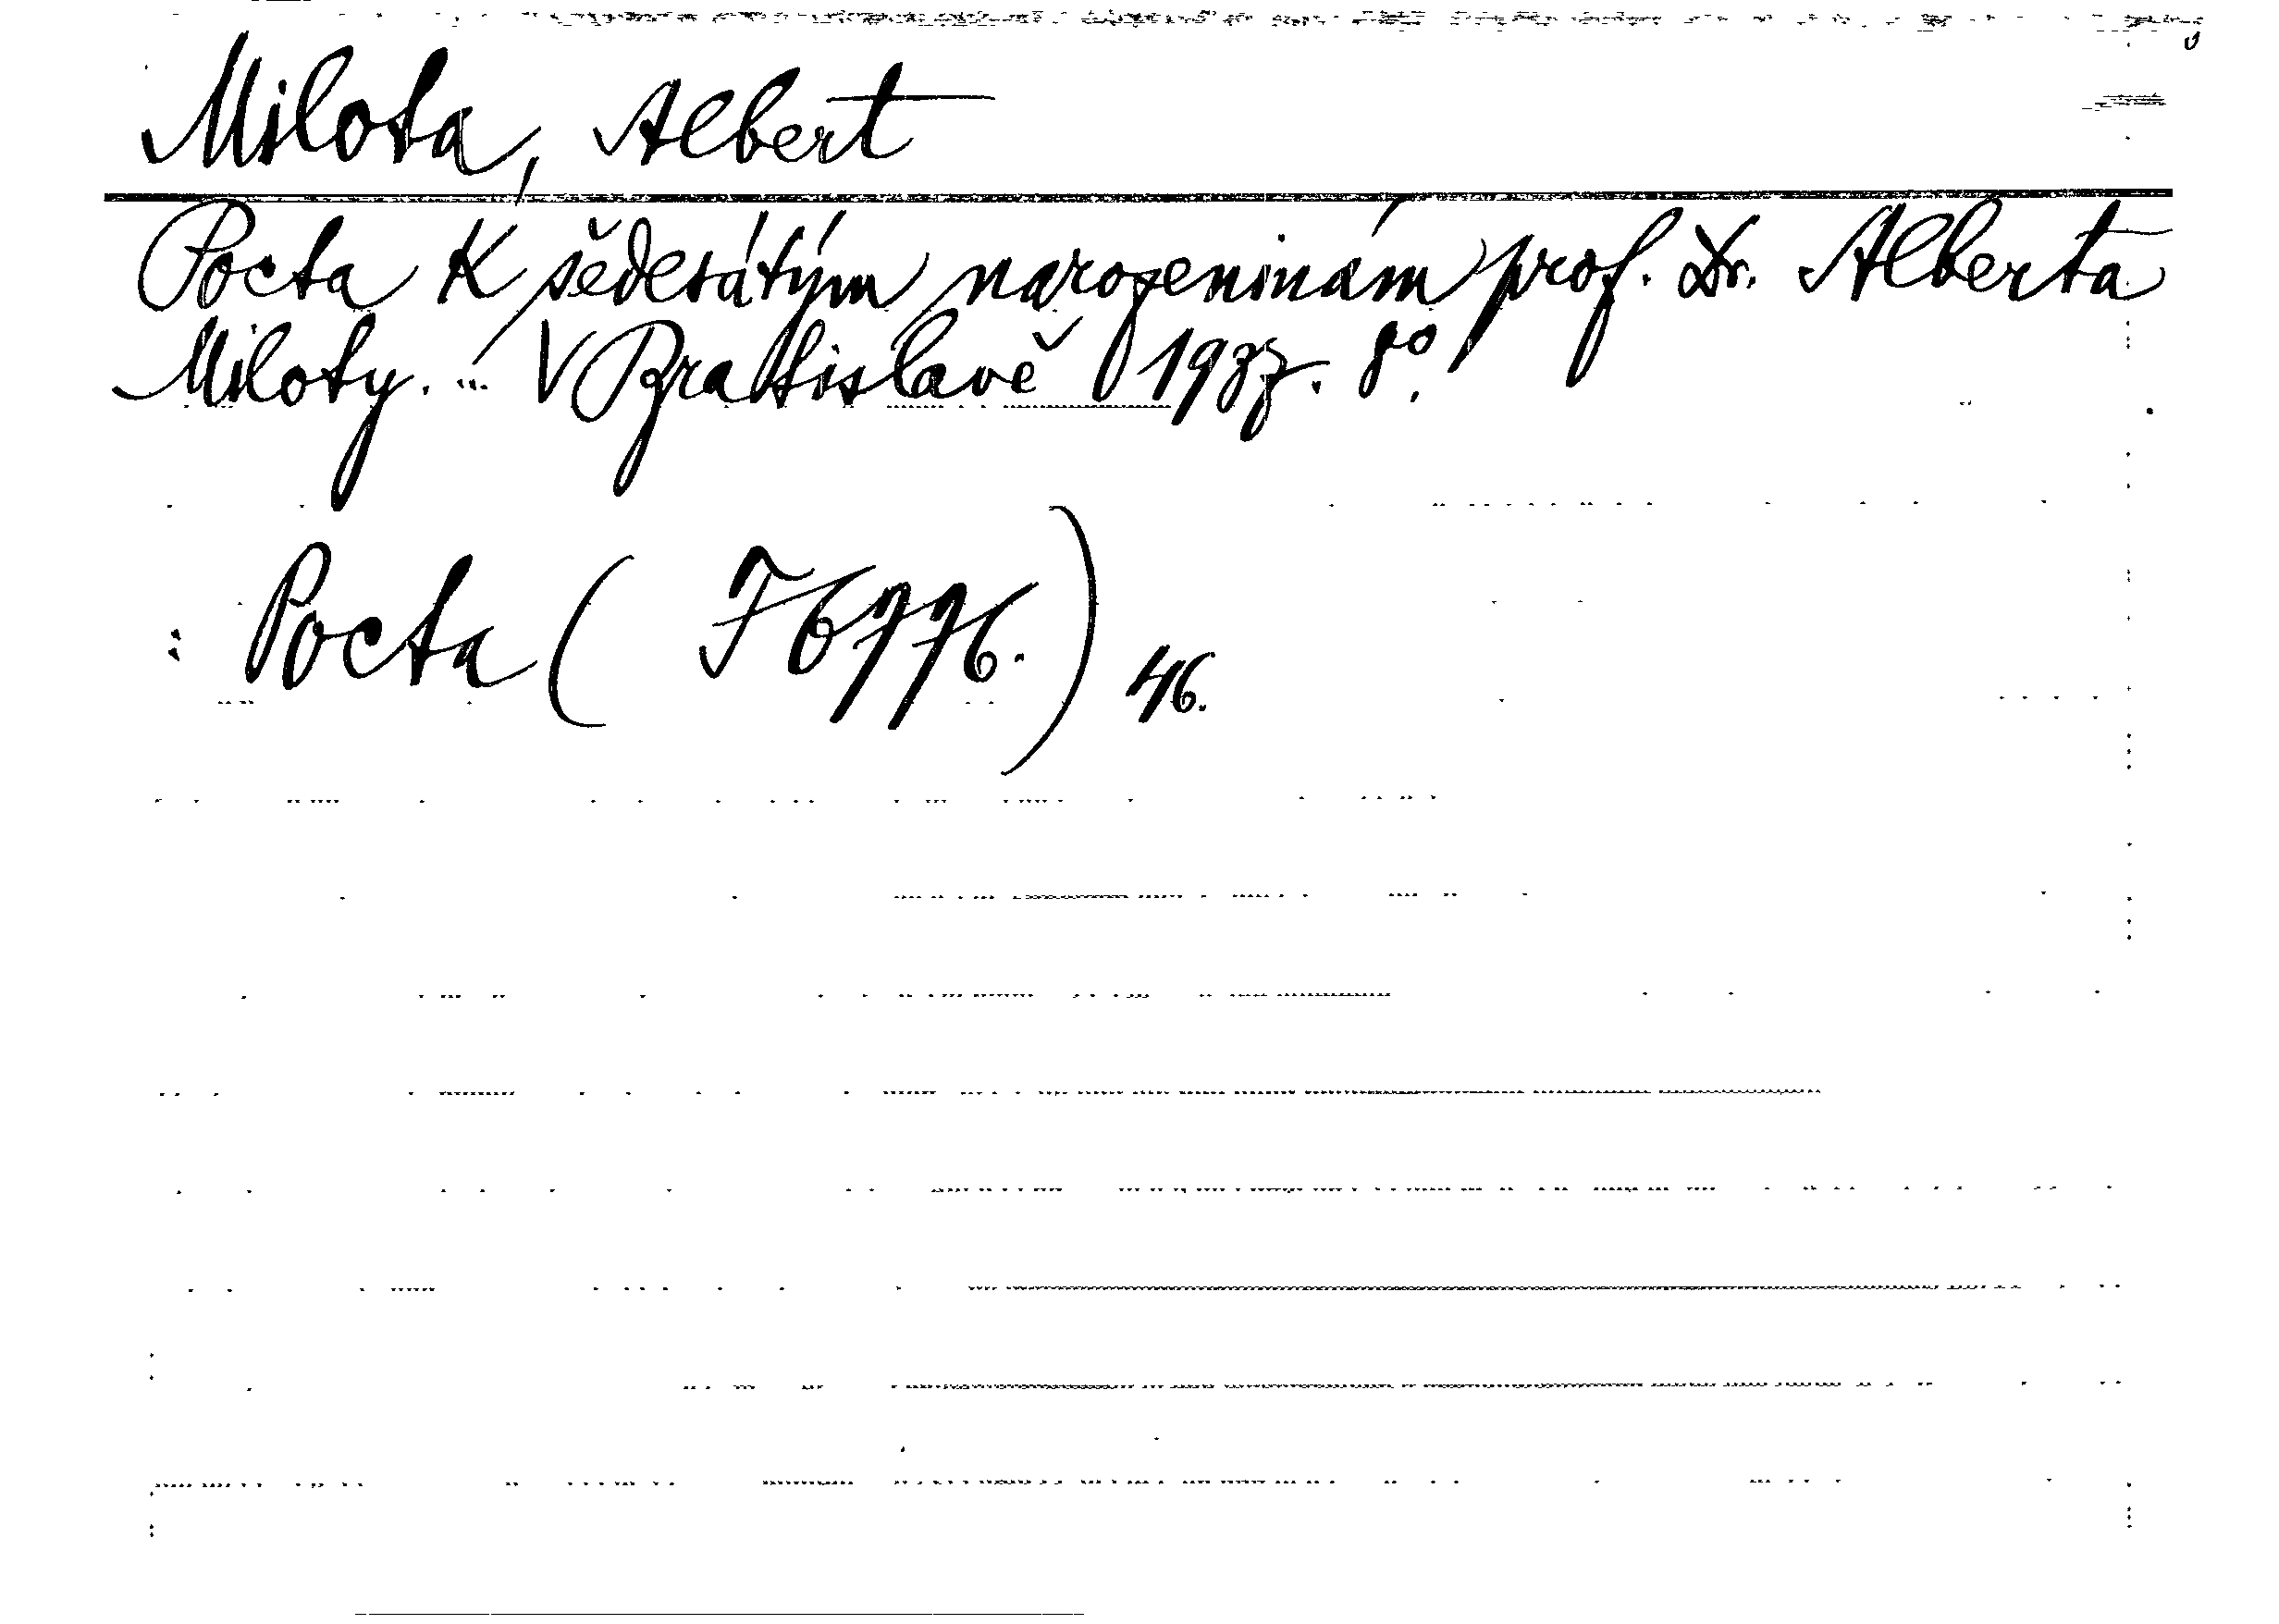 Milota, Albert
Pocta k šedesátým narozeninám prof. Dr. Alberta
Miloty. ... V Bratislavě 1937. 8°.
: Pocta ( F 6776. ) 46.